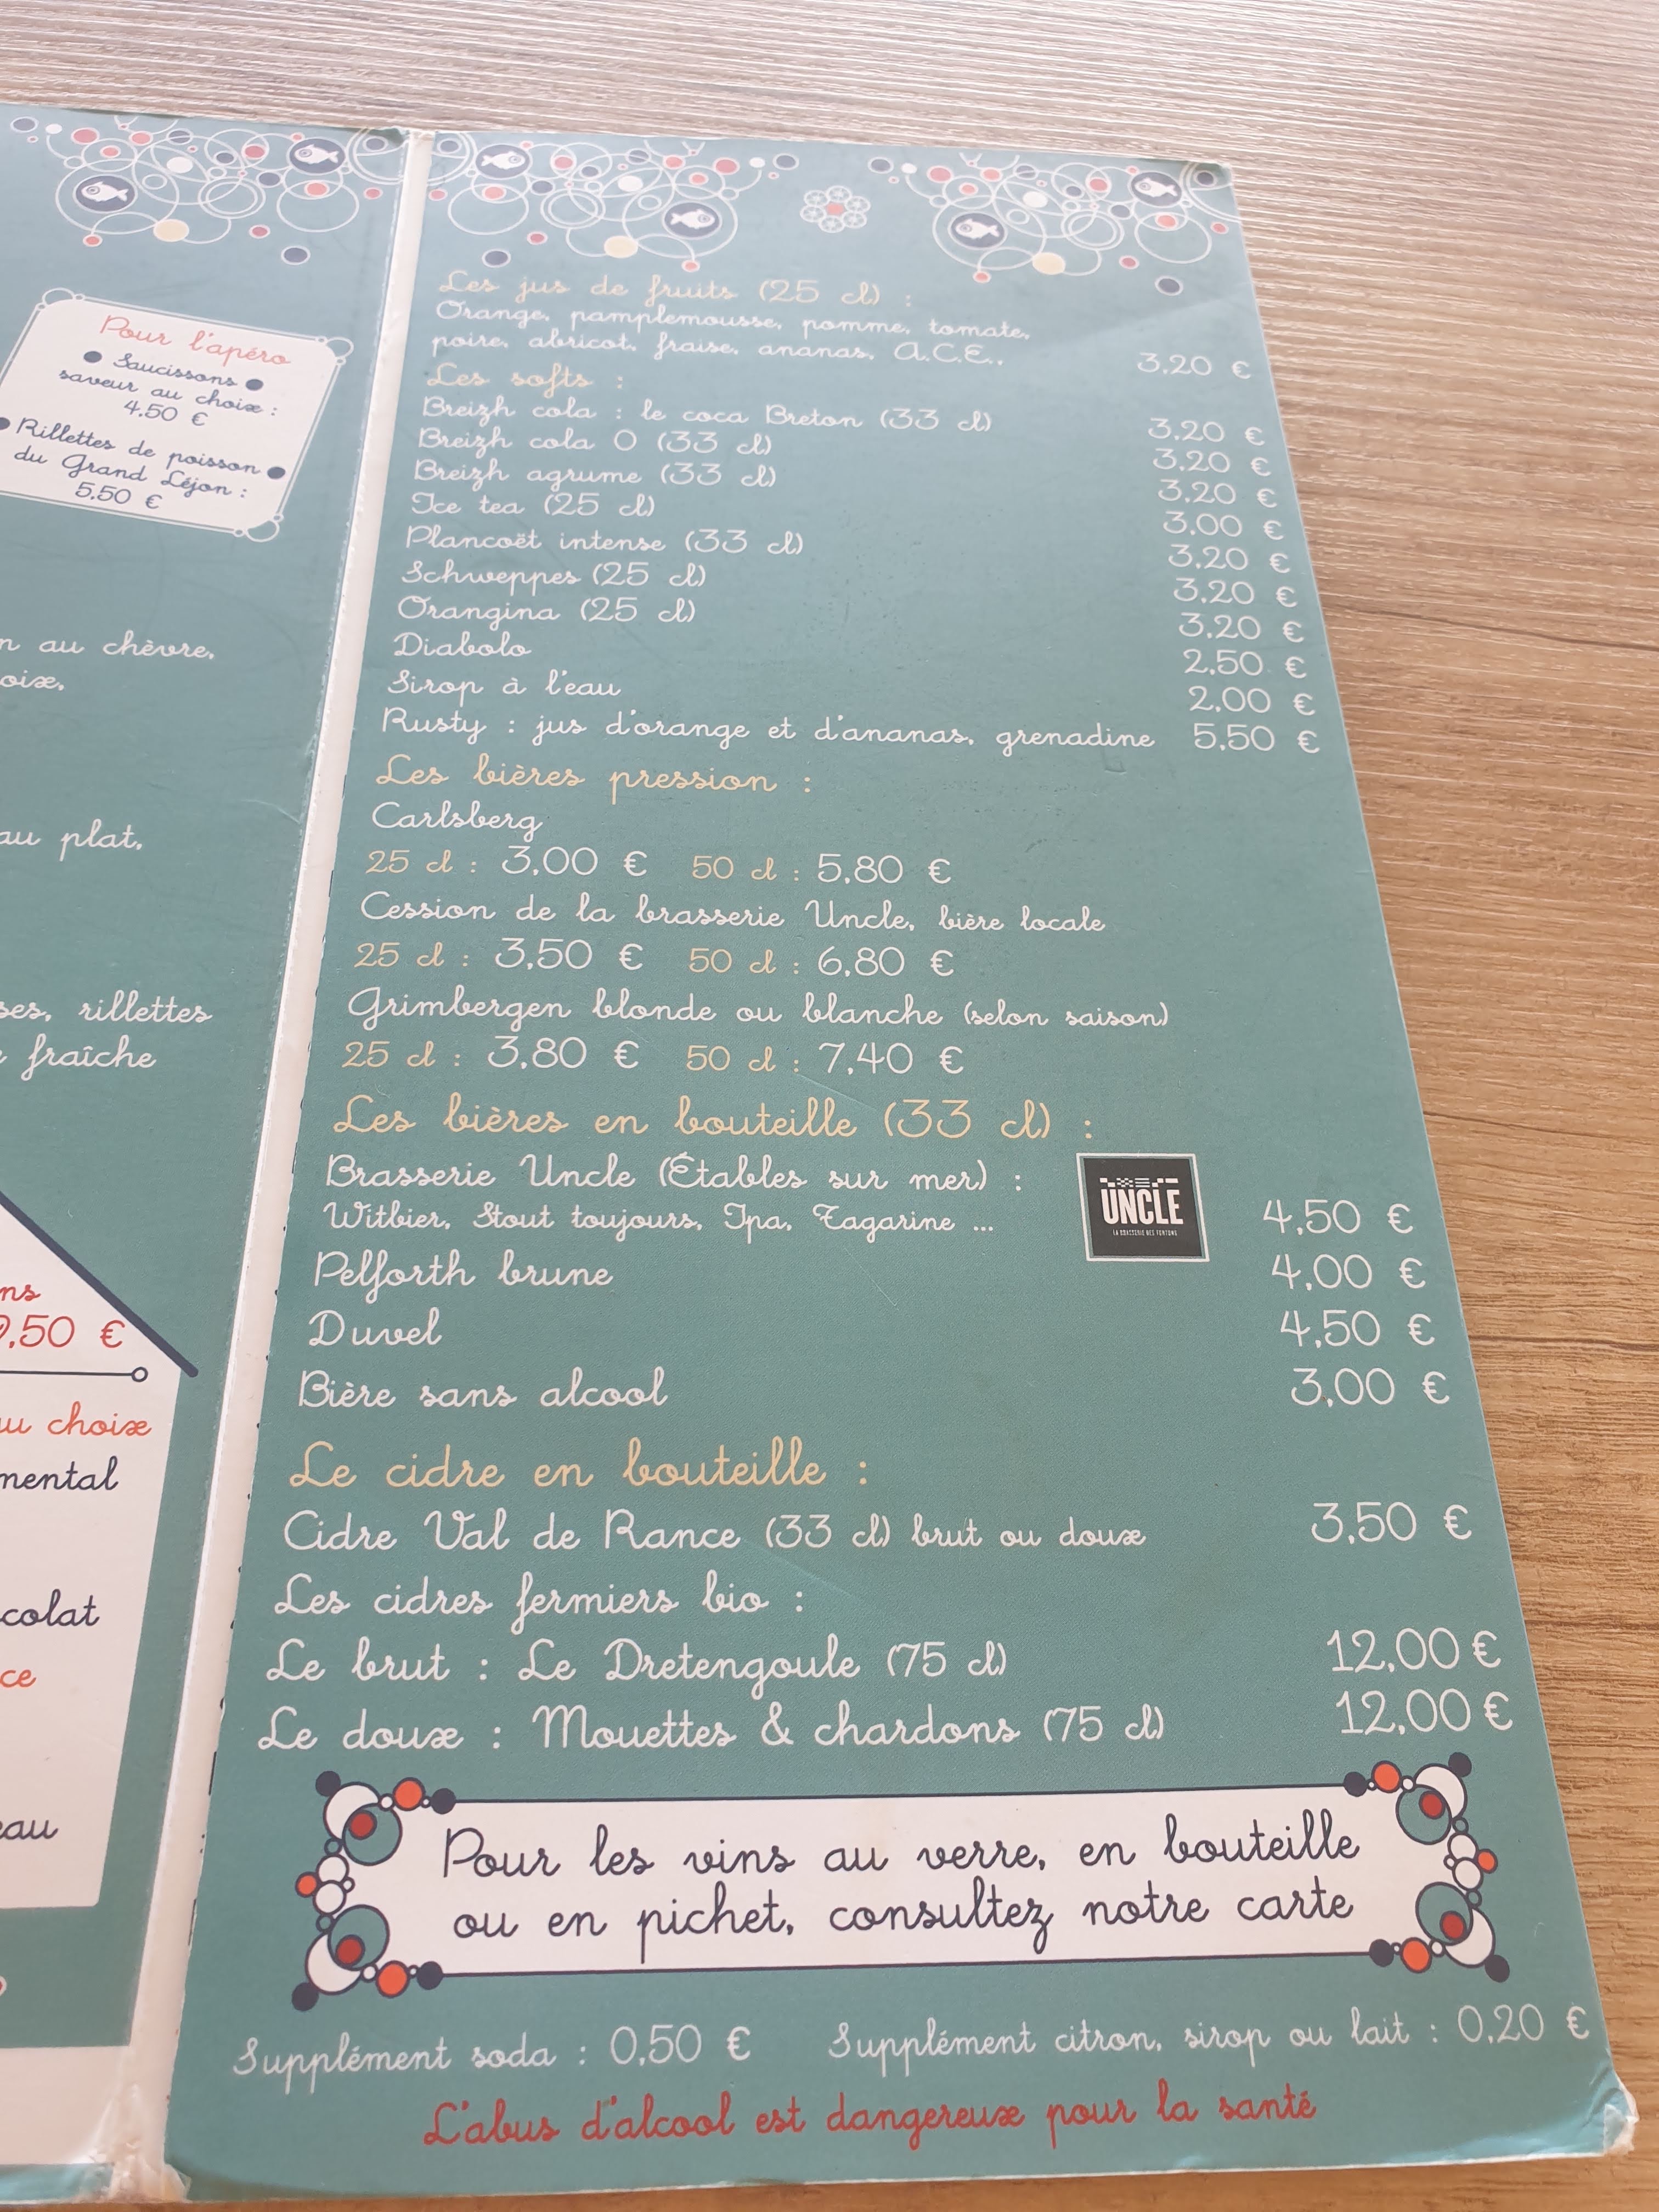 Pour l'apéro
● Saucissons ●
saveur au choix :
4,50 €
● Rillettes de poisson ●
du Grand Léjon :
5,50 €
au chèvre,
au plat,
rillettes
fraîche
9,50 €
choix
Les jus de fruits (25 cl) :
Orange, pamplemousse, pomme, tomate,
poire, abricot, fraise, ananas, A.C.E.. 3,20 €
Les softs :
Breizh cola : le coca Breton (33 cl) 3,20 €
Breizh cola 0 (33 cl) 3,20 €
Breizh agrume (33 cl) 3,20 €
Ice tea (25 cl) 3,00 €
Plancoët intense (33 cl) 3,20 €
Schweppes (25 cl) 3,20 €
Orangina (25 cl) 3,20 €
Diabolo 2,50 €
Sirop à l'eau 2,00 €
Rusty : jus d'orange et d'ananas, grenadine 5,50 €
Les bières pression :
Carlsberg
25 cl : 3,00 € 50 cl : 5,80 €
Cession de la brasserie Uncle, bière locale
25 cl : 3,50 € 50 cl : 6,80 €
Grimbergen blonde ou blanche (selon saison)
25 cl : 3,80 € 50 cl : 7,40 €
Les bières en bouteille (33 cl) :
Brasserie Uncle (Étables sur mer) :
UNCLE
Witbier, Stout toujours, Ipa, Tagarine ... 4,50 €
Pelforth brune 4,00 €
Duvel 4,50 €
Bière sans alcool 3,00 €
Le cidre en bouteille :
Cidre Val de Rance (33 cl) brut ou doux 3,50 €
Les cidres fermiers bio :
Le brut : Le Dretengoule (75 cl) 12,00 €
Le doux : Mouettes & chardons (75 cl) 12,00 €
Pour les vins au verre, en bouteille
ou en pichet, consultez notre carte
Supplément soda : 0,50 € Supplément citron, sirop ou lait : 0,20 €
L'abus d'alcool est dangereux pour la santé